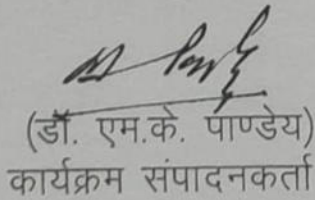 (डॉ. एम.के. पाण्डेय)
कार्यक्रम संपादनकर्ता